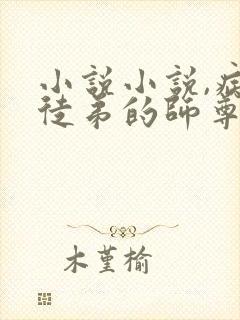 小說小說,病
徒弟的師尊
木堇榆